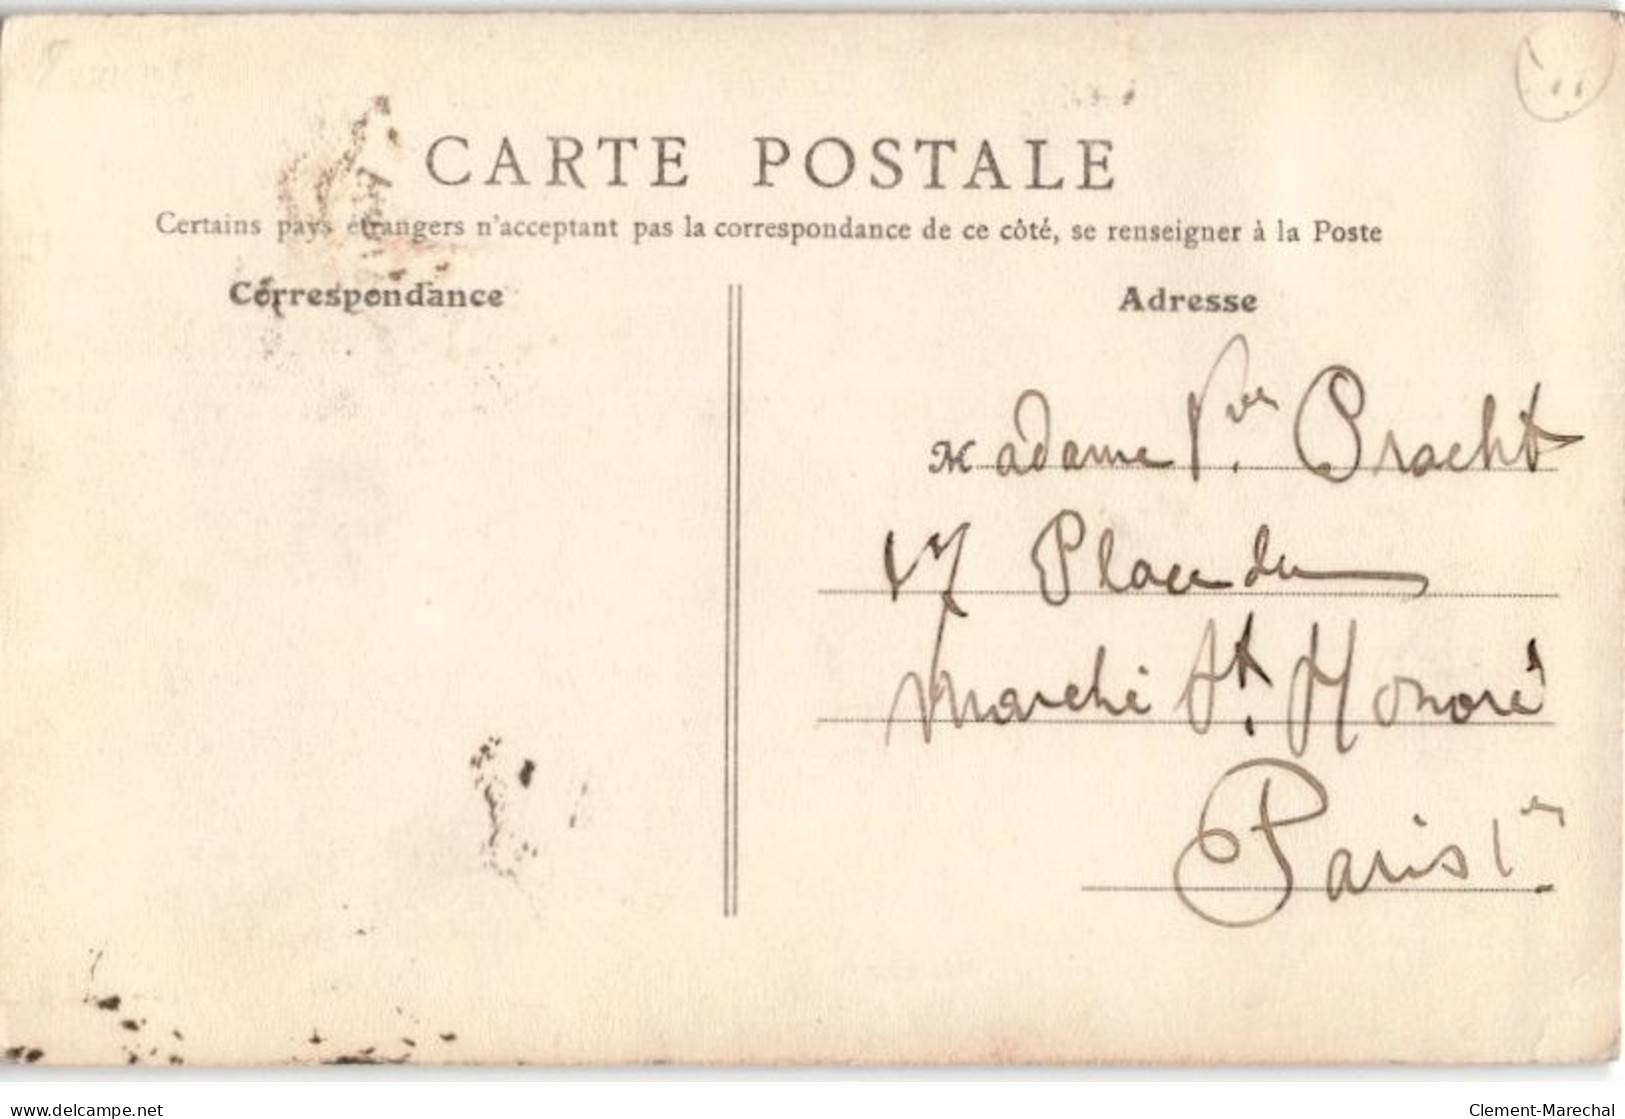 CARTE POSTALE
Certains pays étrangers n'acceptant pas la correspondance de ce côté, se renseigner à la Poste
Correspondance
Adresse
Madame Vve Pracht
17 Place du
Marché St. Honoré
Paris 1er
delcampe.net
Clement-Marechal